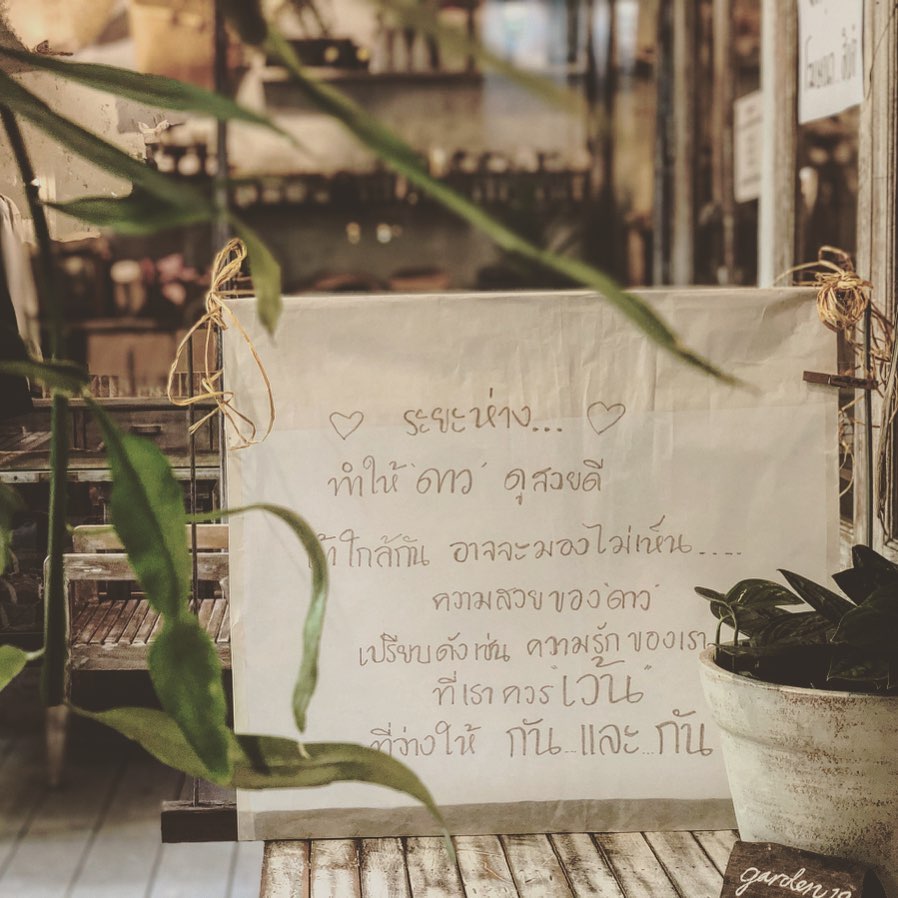 ระยะห่าง...
ทำให้ 'ดาว' ดูสวยดี
ใกล้กัน อาจจะมองไม่เห็น.....
ความสวยของ 'ดาว'
เปรียบดังเช่น ความรักของเรา
ที่เราควร "เว้น"
ที่ว่างให้ กัน...และ...กัน
garden